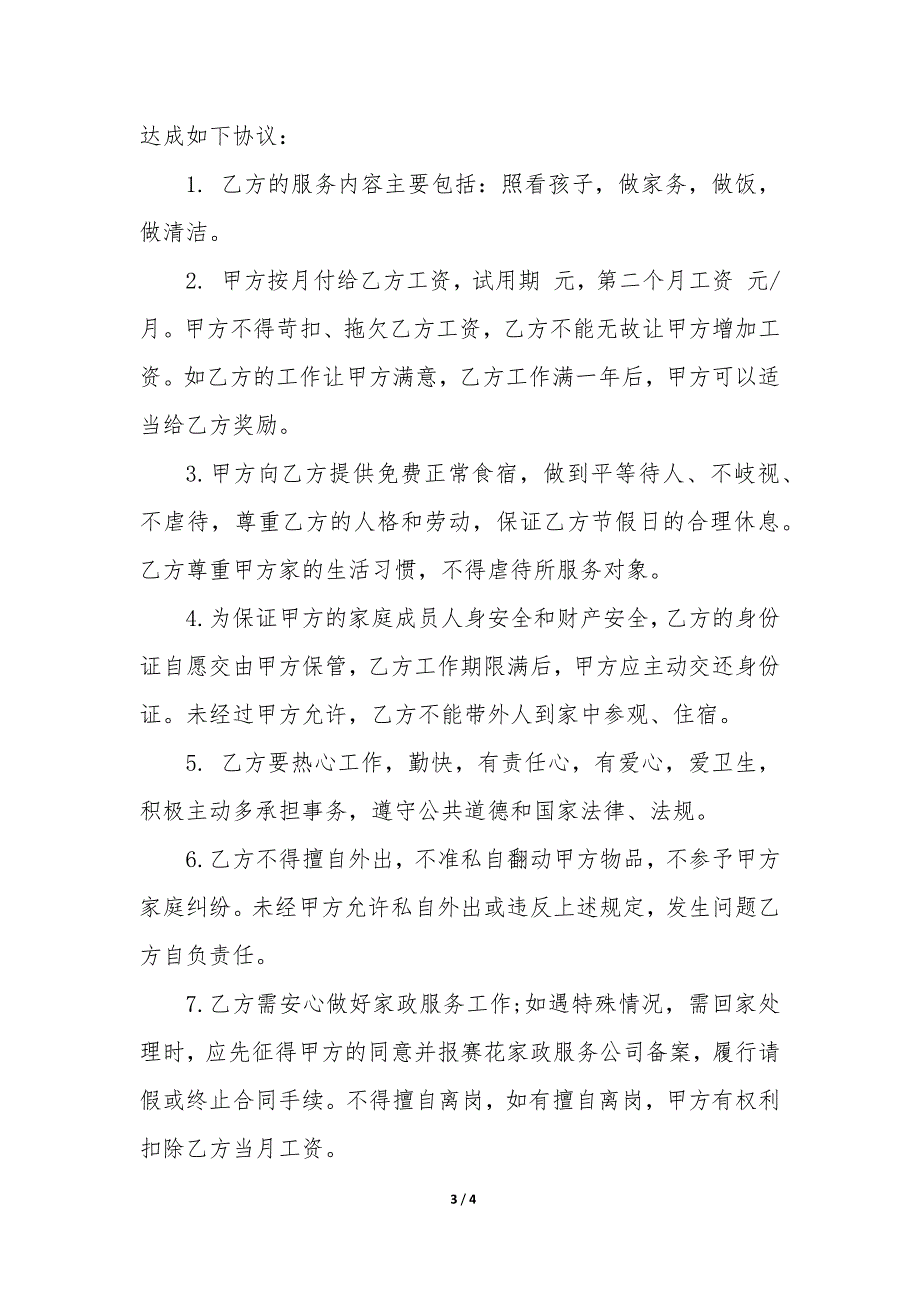 达成如下协议：
1. 乙方的服务内容主要包括：照看孩子，做家务，做饭，
做清洁。
2. 甲方按月付给乙方工资，试用期 元，第二个月工资 元/
月。甲方不得苛扣、拖欠乙方工资，乙方不能无故让甲方增加工
资。如乙方的工作让甲方满意，乙方工作满一年后，甲方可以适
当给乙方奖励。
3.甲方向乙方提供免费正常食宿，做到平等待人、不歧视、
不虐待，尊重乙方的人格和劳动，保证乙方节假日的合理休息。
乙方尊重甲方家的生活习惯，不得虐待所服务对象。
4.为保证甲方的家庭成员人身安全和财产安全，乙方的身份
证自愿交由甲方保管，乙方工作期限满后，甲方应主动交还身份
证。未经过甲方允许，乙方不能带外人到家中参观、住宿。
5. 乙方要热心工作，勤快，有责任心，有爱心，爱卫生，
积极主动多承担事务，遵守公共道德和国家法律、法规。
6.乙方不得擅自外出，不准私自翻动甲方物品，不参予甲方
家庭纠纷。未经甲方允许私自外出或违反上述规定，发生问题乙
方自负责任。
7.乙方需安心做好家政服务工作;如遇特殊情况，需回家处
理时，应先征得甲方的同意并报赛花家政服务公司备案，履行请
假或终止合同手续。不得擅自离岗，如有擅自离岗，甲方有权利
扣除乙方当月工资。
3 / 4